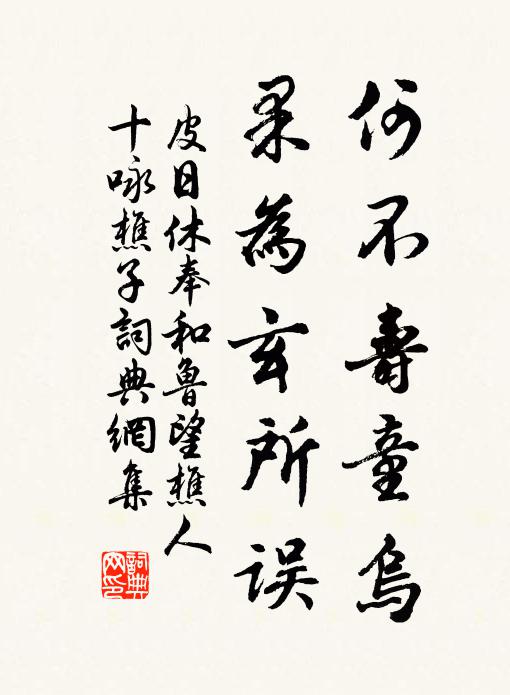 何不壽童烏
果為玄所误
皮日休奉和魯望樵人
十咏樵子詞典網集
詞典网印